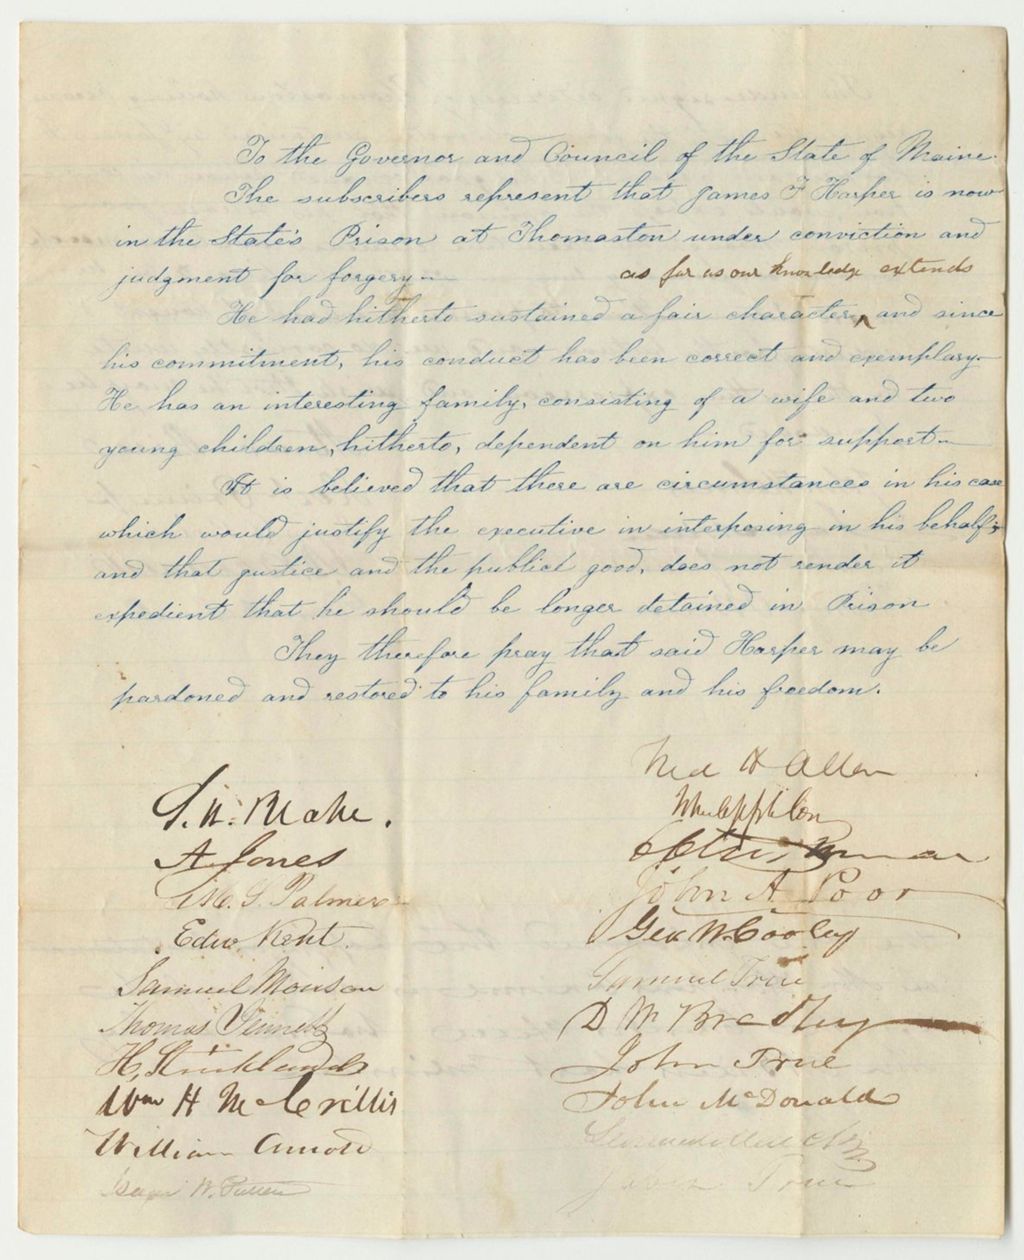 To the Governor and Council of the State of Maine.
The subscribers represent that James F Harper is now
in the State's Prison at Thomaston under conviction and
judgment for forgery—
as far as our knowledge extends
He had hitherto sustained a fair character, ^ and since
his commitment, his conduct has been correct and exemplary—
He has an interesting family, consisting of a wife and two
young children, hitherto, dependent on him for support—
It is believed that there are circumstances in his case
which would justify the executive in interposing in his behalf;
and that justice and the publick good, does not render it
expedient that he should be longer detained in Prison
They therefore pray that said Harper may be
pardoned and restored to his family and his freedom.
H Allen
S. H. Blake.
A. Jones
John A. Poor
G. Palmer
Geo W. Cooley
Edw Kent.
Samuel True
Samuel
D W Bradley
Thomas
H. Strickland
John True
Wm H McCrillis
John McDonald
William Arnold
W.
True